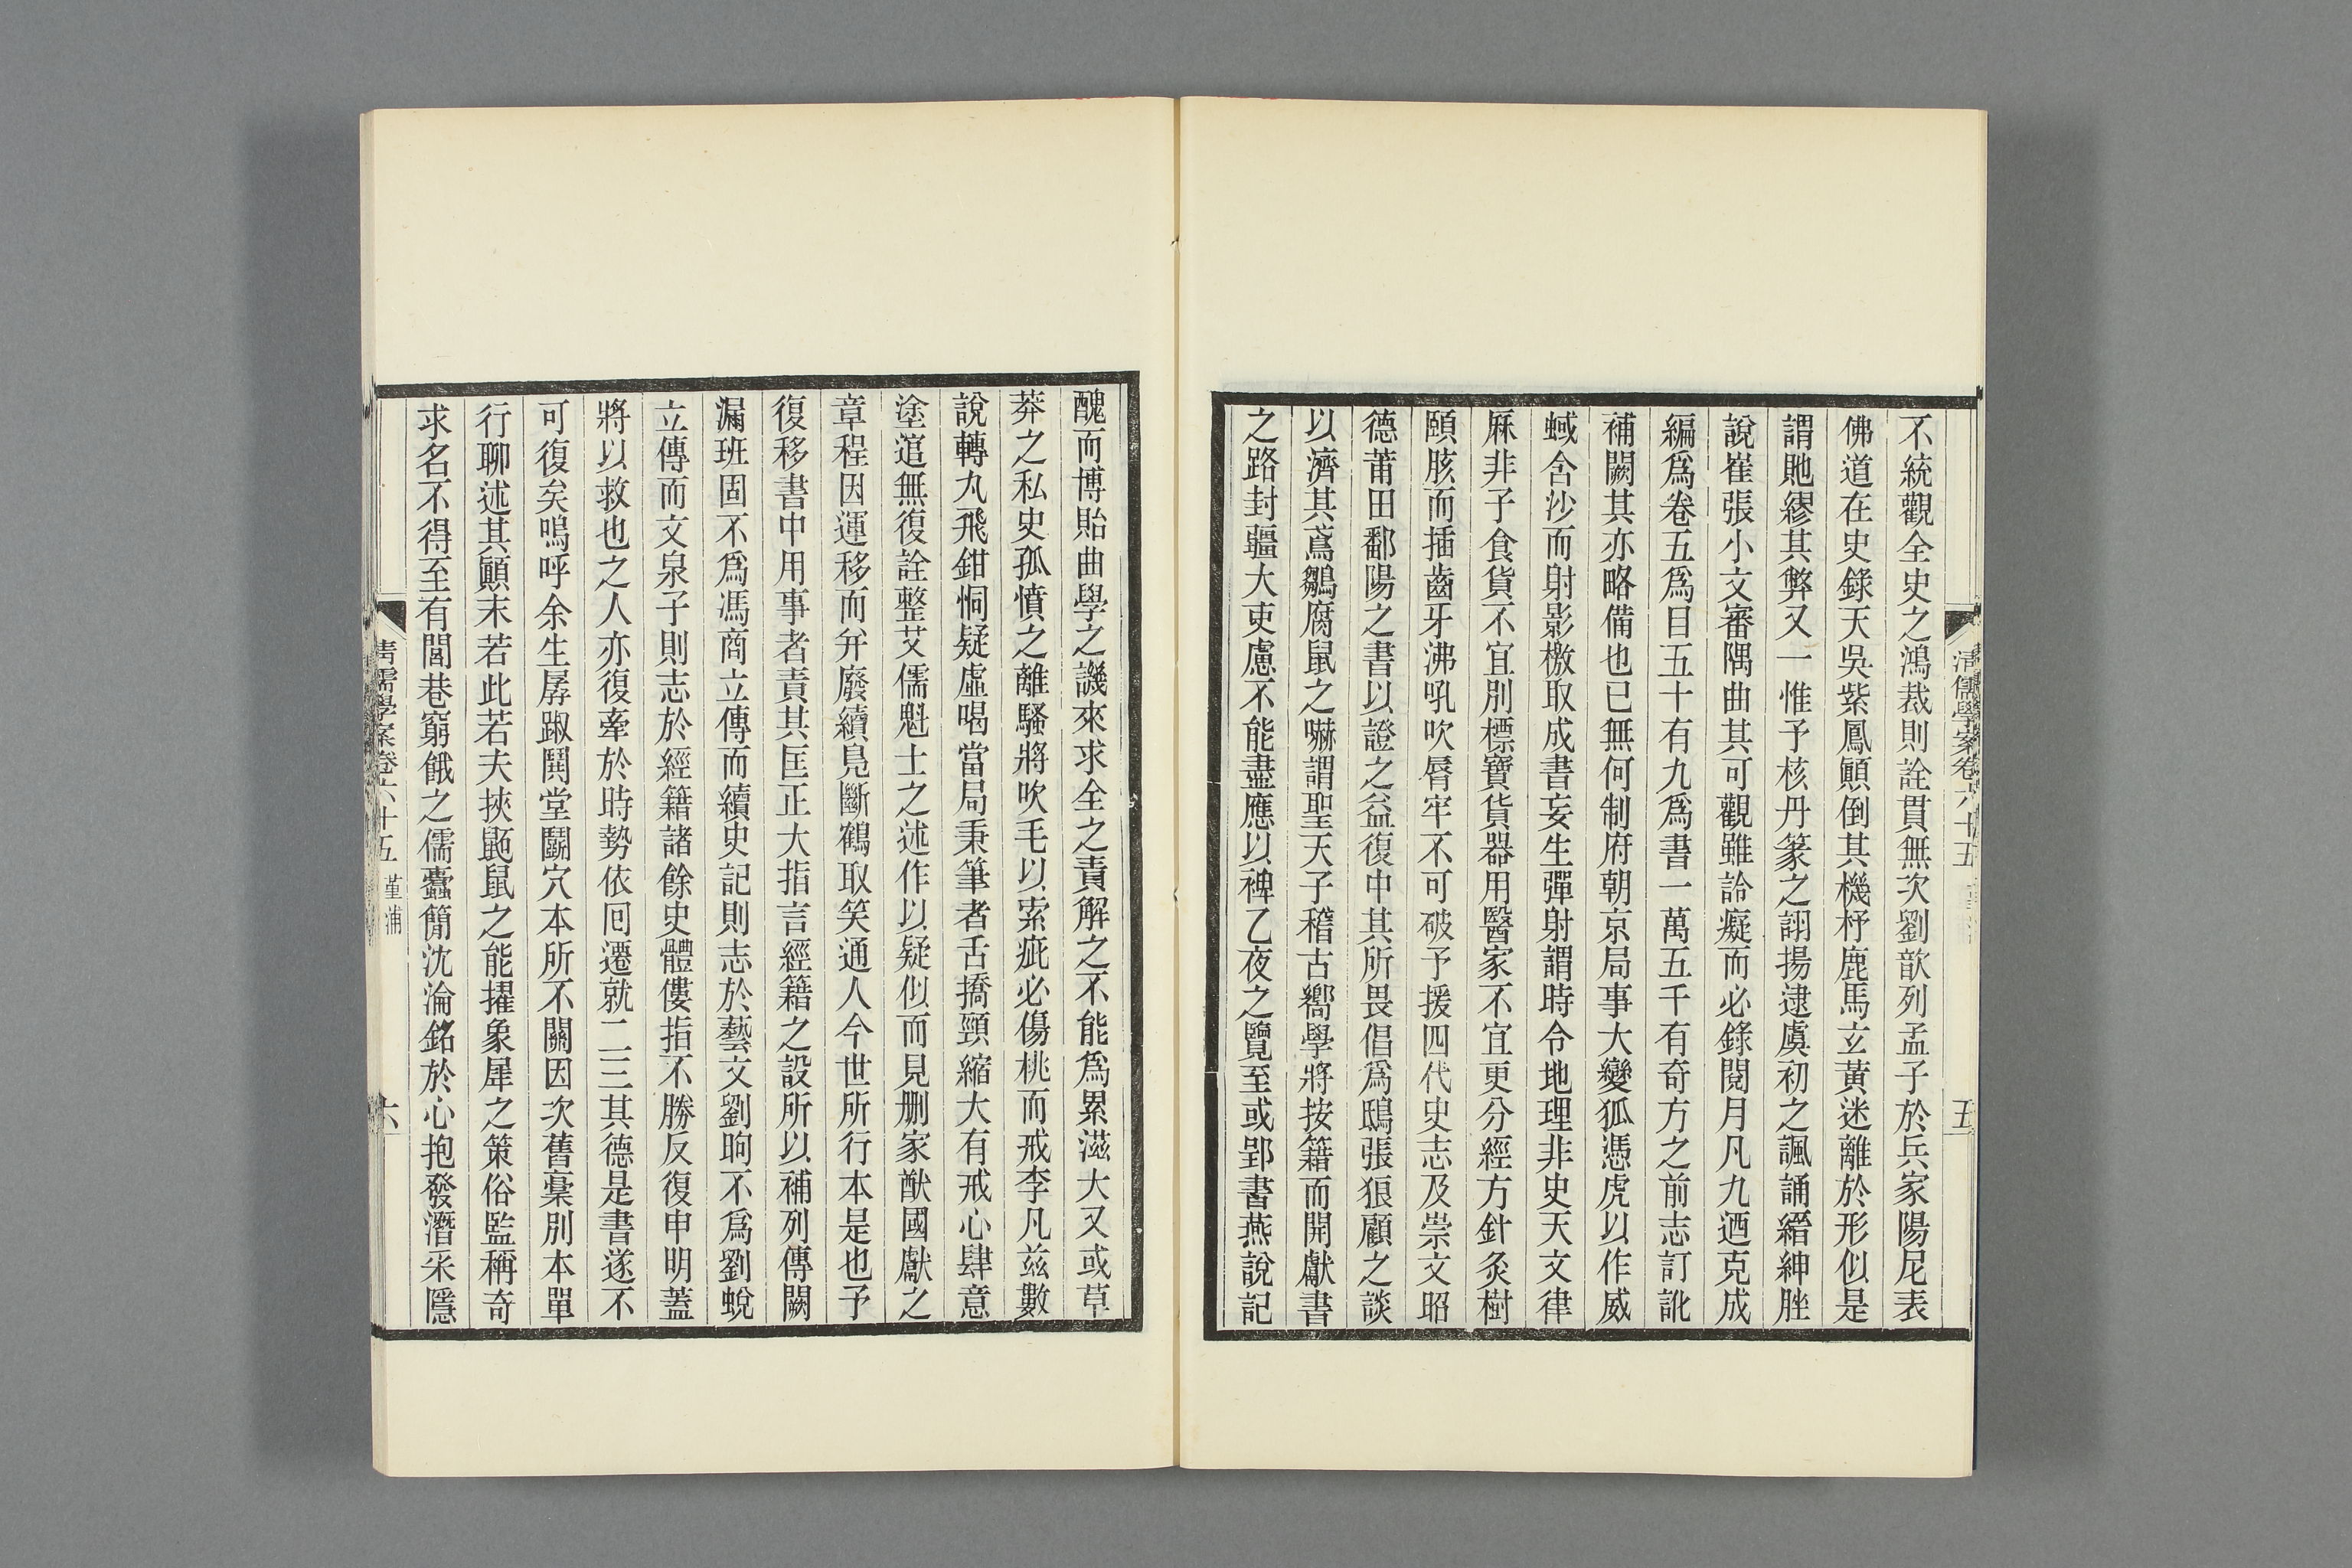 不統觀全史之鴻裁則詮貫無次劉歆列孟子於兵家陽尼表
佛道在史錄天吳紫鳳顚倒其機杼鹿馬玄黃迷離於形似是
謂貤繆其弊又一惟予核丹篆之詡揚逮虞初之諷誦縉紳脞
說崔張小文審隅曲其可觀雖詅癡而必錄閱月凡九迺克成
編爲卷五爲目五十有九爲書一萬五千有奇方之前志訂訛
補闕其亦略備也已無何制府朝京局事大變狐憑虎以作威
蜮含沙而射影檄取成書妄生彈射謂時令地理非史天文律
厤非子食貨不宜別標寶貨器用醫家不宜更分經方針灸樹
頤胲而插齒牙沸吼吹脣牢不可破予援四代史志及崇文昭
德莆田鄱陽之書以證之益復中其所畏倡爲鴟張狼顧之談
以濟其鳶鶵腐鼠之嚇謂聖天子稽古嚮學將按籍而開獻書
之路封疆大吏慮不能盡應以裨乙夜之覽至或郢書燕說記
清儒學案卷六十五
五
醜而博貽曲學之譏來求全之責解之不能爲累滋大又或草
莽之私史孤憤之離騷將吹毛以索疵必傷桃而戒李凡兹數
說轉丸飛鉗恫疑虛喝當局秉筆者舌撟頸縮大有戒心肆意
塗𨓍無復詮整艾儒魁士之述作以疑似而見刪家猷國獻之
章程因運移而弁廢續鳧斷鶴取笑通人今世所行本是也予
復移書中用事者責其匡正大指言經籍之設所以補列傳闕
漏班固不爲馮商立傳而續史記則志於藝文劉昫不爲劉蛻
立傳而文泉子則志於經籍諸餘史體僂指不勝反復申明蓋
將以救也之人亦復牽於時勢依囘遷就二三其德是書遂不
可復矣嗚呼余生孱踧鬨堂鬭穴本所不關因次舊稾別本單
行聊述其顚末若此若夫挾鼫鼠之能擢象犀之策俗監稱奇
求名不得至有閭巷窮餓之儒蠹簡沈淪銘於心抱發潛采隱
清儒學案卷六十五 堇浦
六